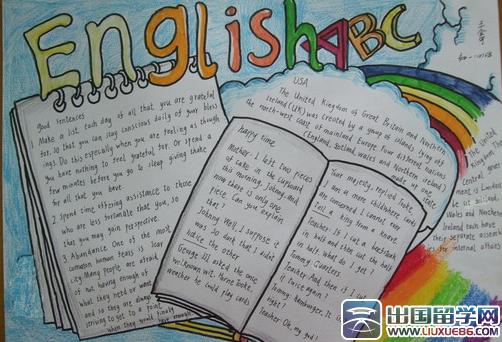 English ABC
good sentences
Make a list each day of all that you are grateful
for, so that you can stay conscious daily of your bless
ings. Do this especially when you are feeling as though
you have nothing to feel grateful for. Or spend a
few minutes before you go to sleep giving thanks
for all that you have
2 spend time offering assistance to those
who are less fortunate than you, so
that you may gain perspective.
3 Abundance One of the most
common human fears is scar
city. Many people are afraid
of not having enough of
what they need or want
and so they are always
striving to get to a point
when they would finally
enough
happy time
Mother: I left two pieces
of cake in the cupboard
this morning, Johnny, and
now there is only one
piece. Can you explain
that?
Johnny: Well, I suppose it
was so dark that I didn't
notice the other
George III asked the one
whether he could play cards
Your majesty, replied Tooke,
I am a mere child where cards
are concerned. I cannot even
tell a king from a knave.
Teacher: If I cut a beefsteak
in half and then cut the half
in half, what do I get?
Tommy: Quarters.
Teacher: And then if I cut
it twice again?
Tommy: hamburger
Teacher: Oh, my god!
USA
The United Kingdom of Great Britain and Northern
Ireland (UK) was created by a group of islands lying off
the north-west coast of mainland Europe. Four different nations
(England, Scotland, Wales and Northern Ireland)
made up one
state
central
London
Wales and Northern
Ireland each have
their separate
for internal affairs
出国留学网
WWW.LIUXUE86.COM